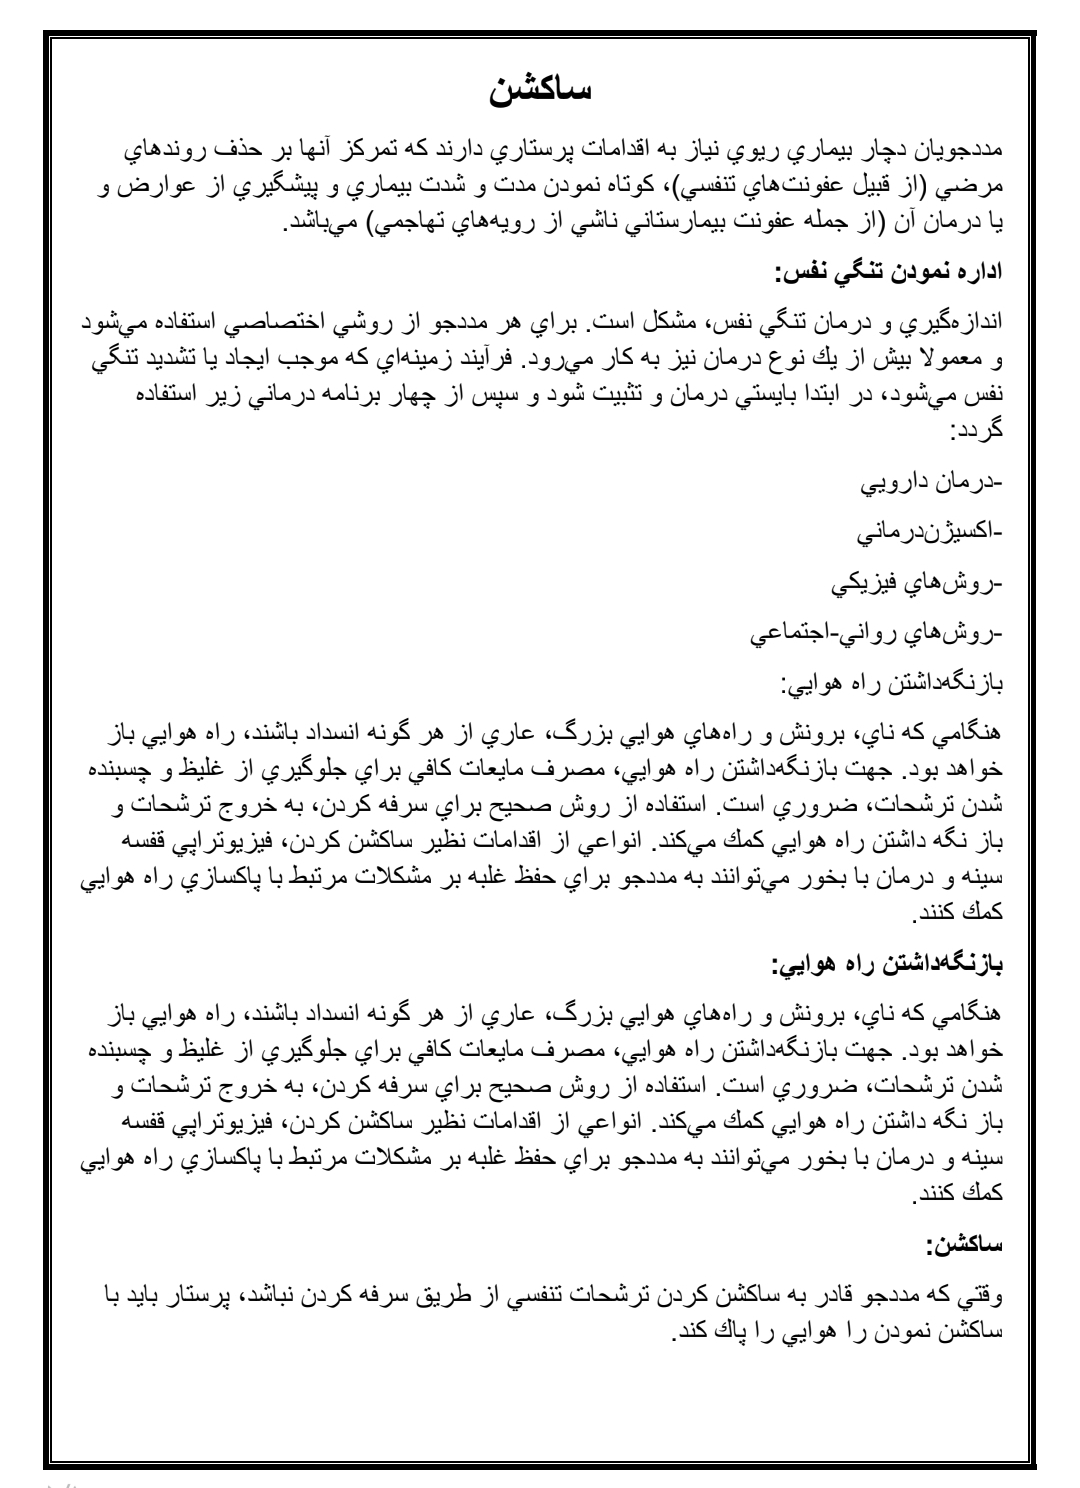 ساكشن
مددجويان دچار بيماري ريوي نياز به اقدامات پرستاري دارند كه تمركز آنها بر حذف روندهاي
مرضي (از قبيل عفونت‌هاي تنفسي)، كوتاه نمودن مدت و شدت بيماري و پيشگيري از عوارض و
يا درمان آن (از جمله عفونت بيمارستاني ناشي از رويه‌هاي تهاجمي) مي‌باشد.
اداره نمودن تنگي نفس:
اندازه‌گيري و درمان تنگي نفس، مشكل است. براي هر مددجو از روشي اختصاصي استفاده مي‌شود
و معمولا بيش از يك نوع درمان نيز به كار مي‌رود. فرآيند زمينه‌اي كه موجب ايجاد يا تشديد تنگي
نفس مي‌شود، در ابتدا بايستي درمان و تثبيت شود و سپس از چهار برنامه درماني زير استفاده
گردد:
-درمان دارويي
-اكسيژن‌درماني
-روش‌هاي فيزيكي
-روش‌هاي رواني-اجتماعي
بازنگه‌داشتن راه هوايي:
هنگامي كه ناي، برونش و راه‌هاي هوايي بزرگ، عاري از هر گونه انسداد باشند، راه هوايي باز
خواهد بود. جهت بازنگه‌داشتن راه هوايي، مصرف مايعات كافي براي جلوگيري از غليظ و چسبنده
شدن ترشحات، ضروري است. استفاده از روش صحيح براي سرفه كردن، به خروج ترشحات و
باز نگه داشتن راه هوايي كمك مي‌كند. انواعي از اقدامات نظير ساكشن كردن، فيزيوتراپي قفسه
سينه و درمان با بخور مي‌توانند به مددجو براي حفظ غلبه بر مشكلات مرتبط با پاكسازي راه هوايي
كمك كنند.
بازنگه‌داشتن راه هوايي:
هنگامي كه ناي، برونش و راه‌هاي هوايي بزرگ، عاري از هر گونه انسداد باشند، راه هوايي باز
خواهد بود. جهت بازنگه‌داشتن راه هوايي، مصرف مايعات كافي براي جلوگيري از غليظ و چسبنده
شدن ترشحات، ضروري است. استفاده از روش صحيح براي سرفه كردن، به خروج ترشحات و
باز نگه داشتن راه هوايي كمك مي‌كند. انواعي از اقدامات نظير ساكشن كردن، فيزيوتراپي قفسه
سينه و درمان با بخور مي‌توانند به مددجو براي حفظ غلبه بر مشكلات مرتبط با پاكسازي راه هوايي
كمك كنند.
ساكشن:
وقتي كه مددجو قادر به ساكشن كردن ترشحات تنفسي از طريق سرفه كردن نباشد، پرستار بايد با
ساكشن نمودن را هوايي را پاك كند.